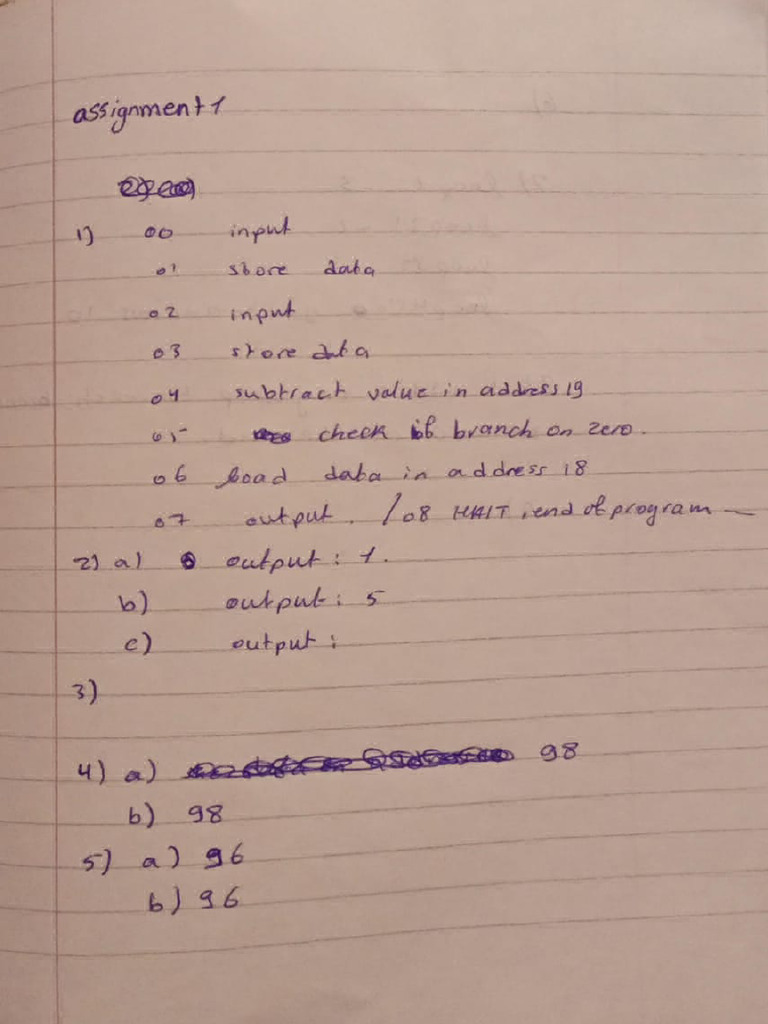 assignment 1
1) 00 input
01 store data
02 input
03 store data
04 subtract value in address 19
05 check if branch on zero.
06 load data in address 18
07 output. / 08 HAIT, end of program
2) a) output: 1.
b) output: 5
c) output:
3)
4) a) 98
b) 98
5) a) 96
b) 96